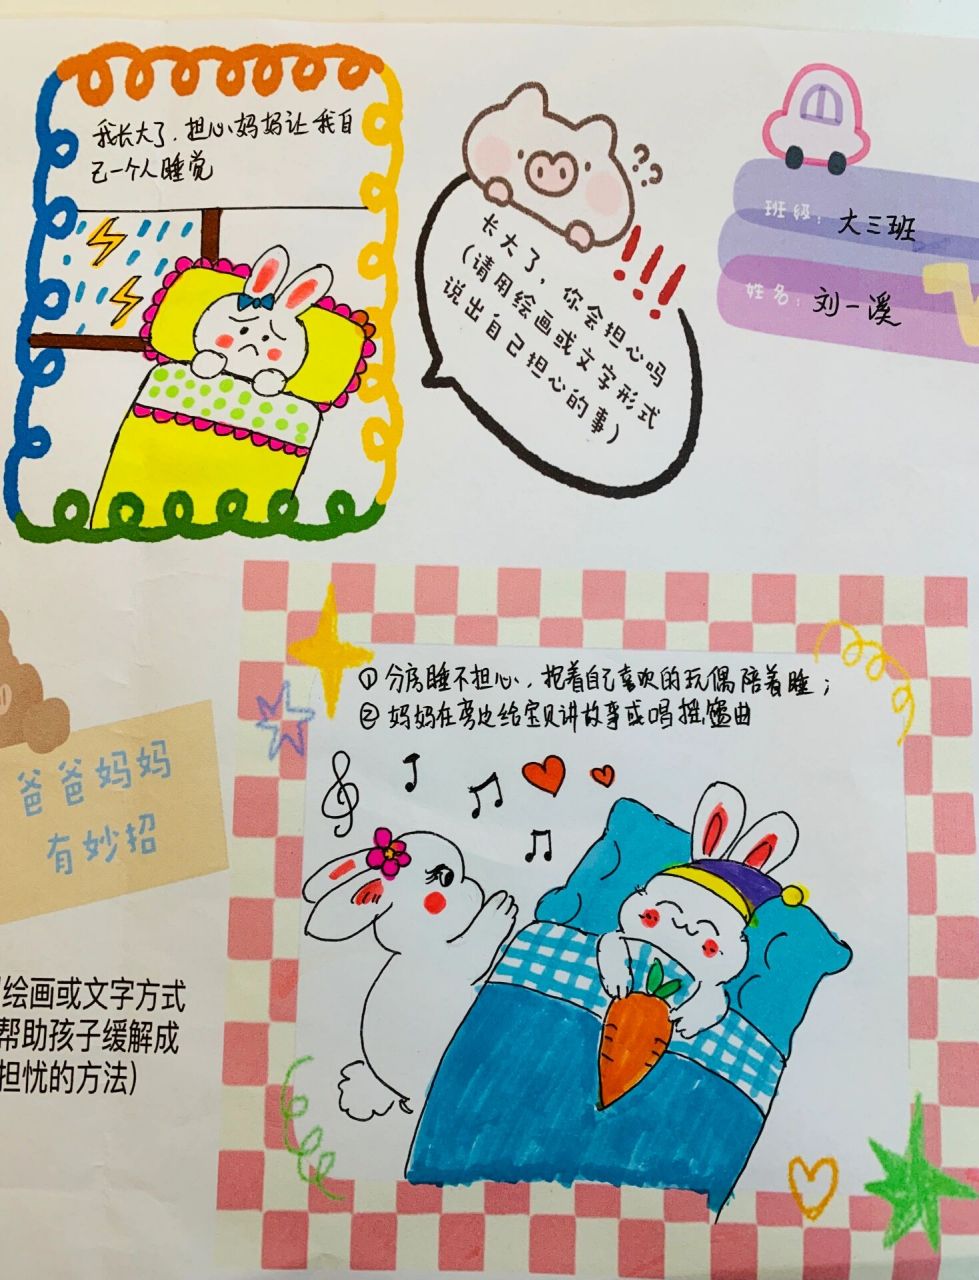 我长大了,担心妈妈让我自
己一个人睡觉
??
!!!
长大了，你会担心吗
(请用绘画或文字形式
说出自己担心的事)
班级：大三班
姓名：刘一溪
①分房睡不担心,抱着自己喜欢的玩偶陪着睡；
②妈妈在旁边给宝贝讲故事或唱摇篮曲
爸爸妈妈
有妙招
绘画或文字方式
帮助孩子缓解成
担忧的方法)